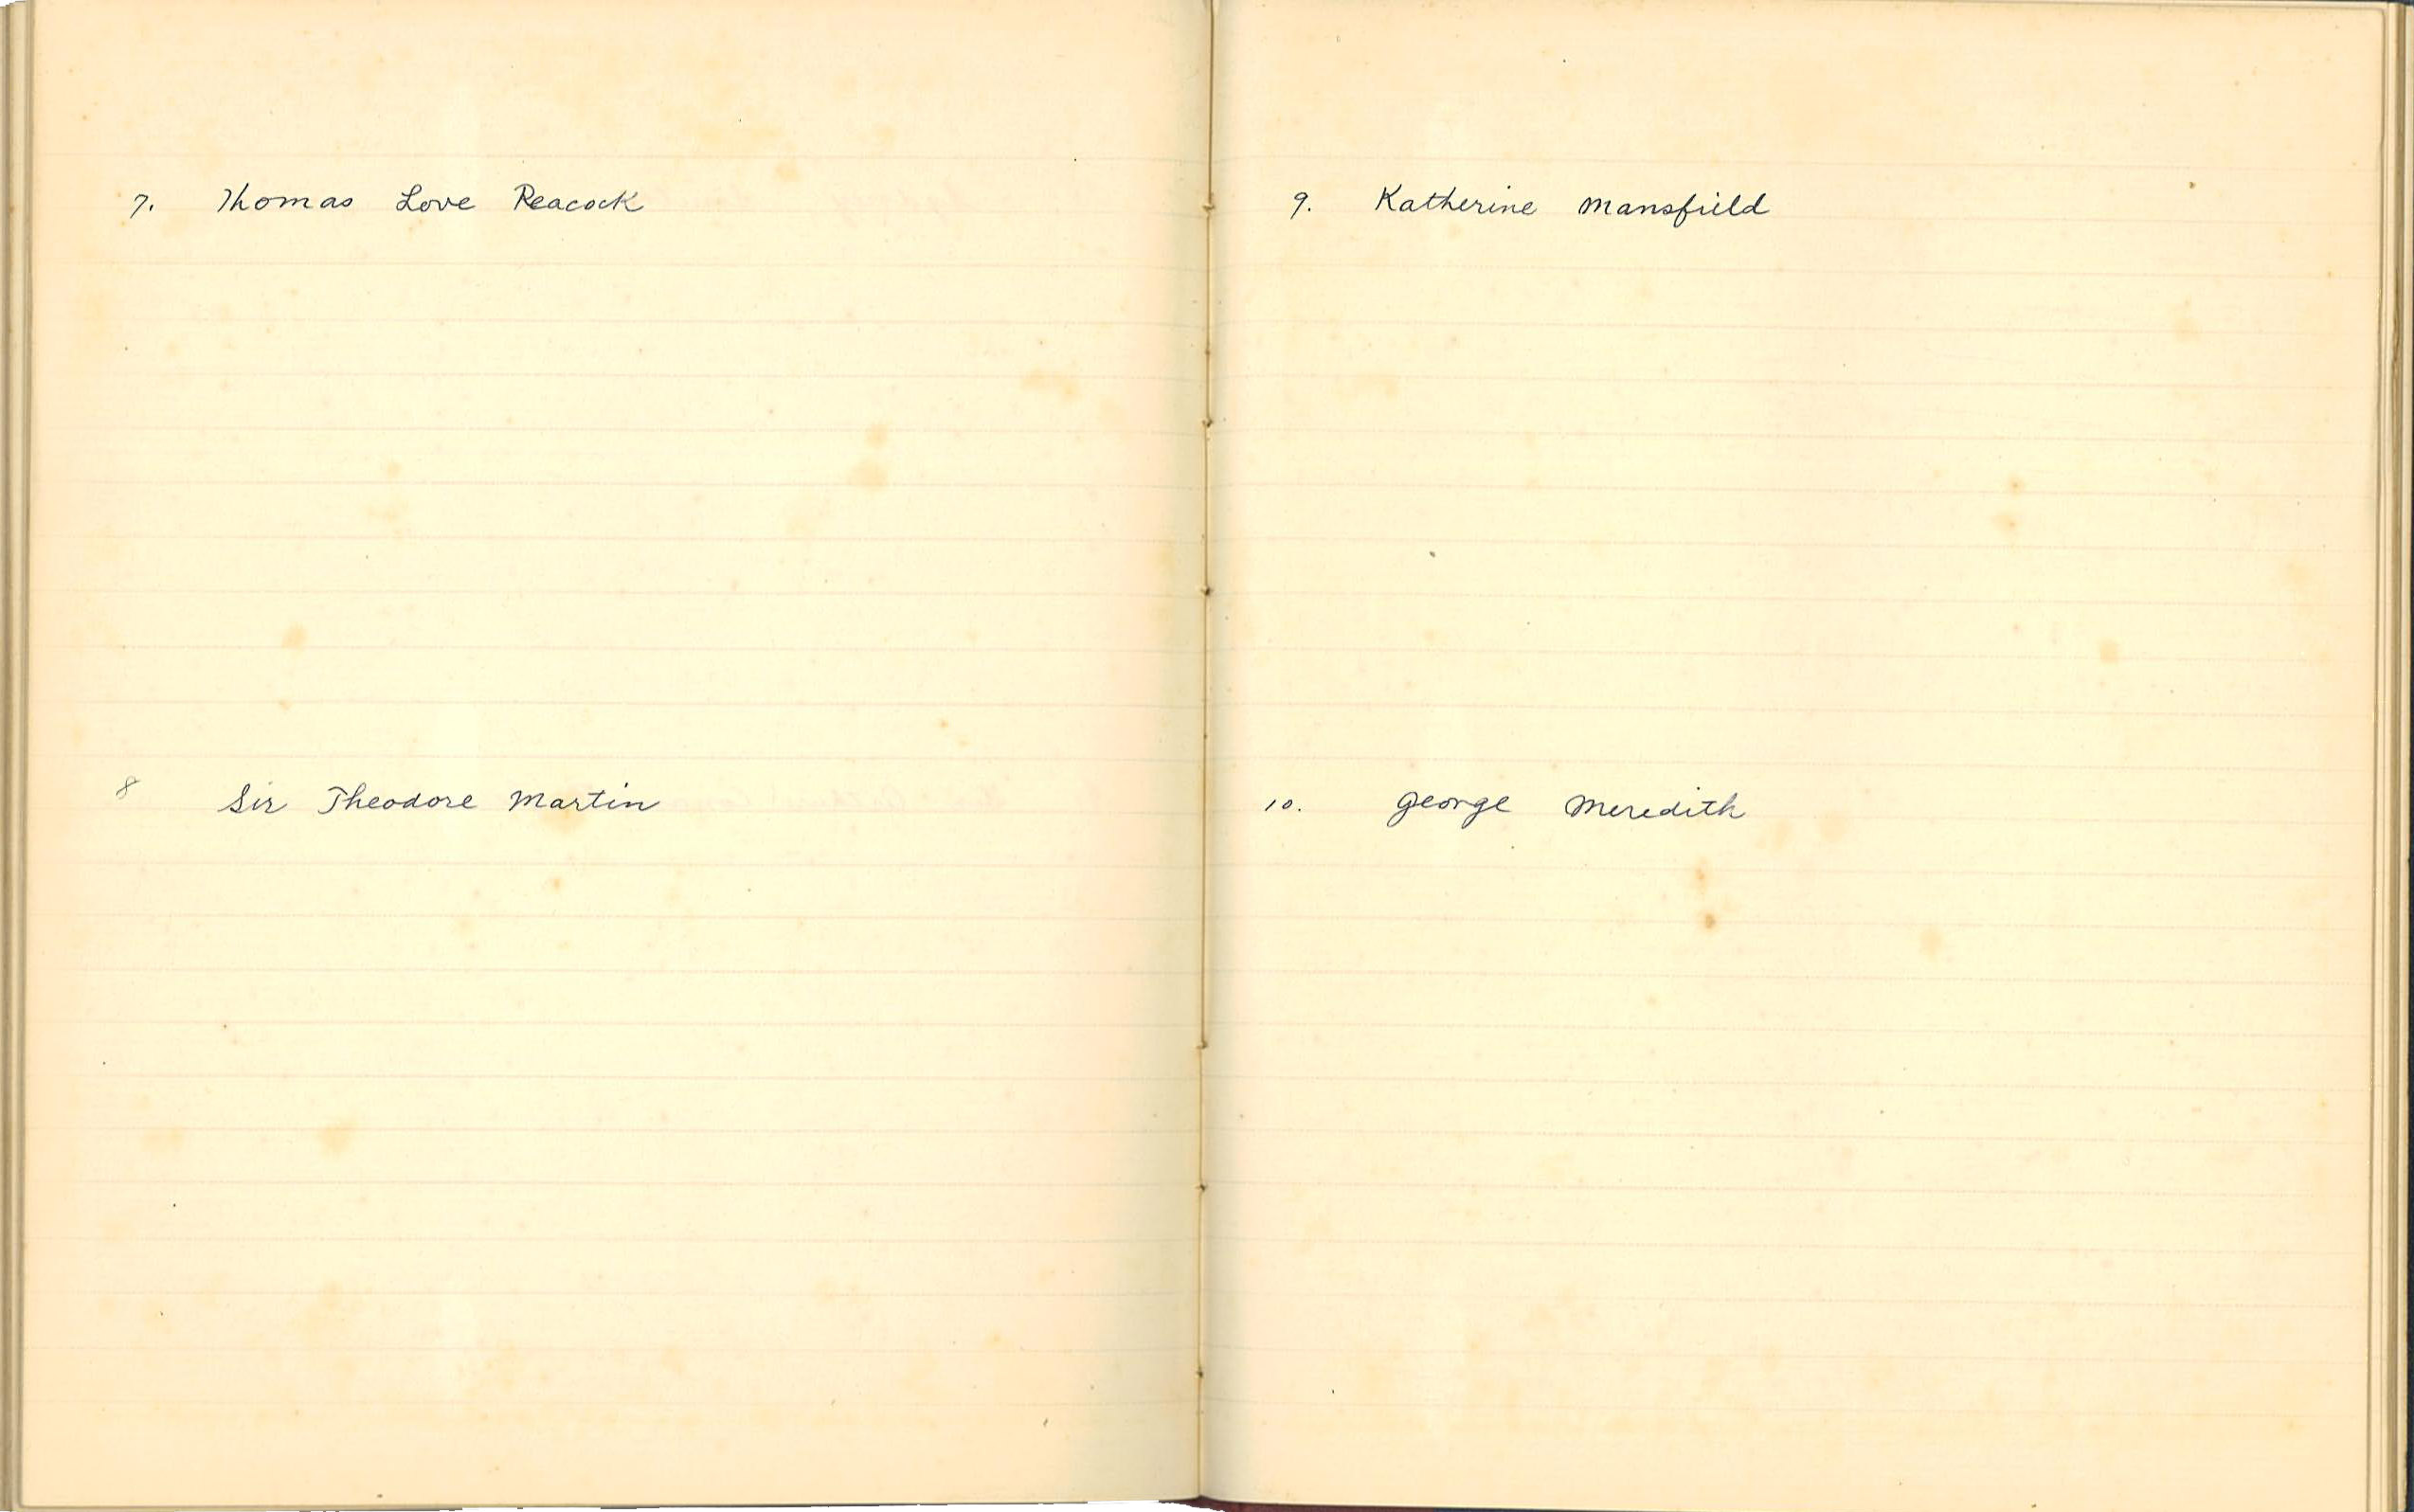 7. Thomas Love Peacock
8 Sir Theodore Martin
9. Katherine Mansfield
10. George Meredith